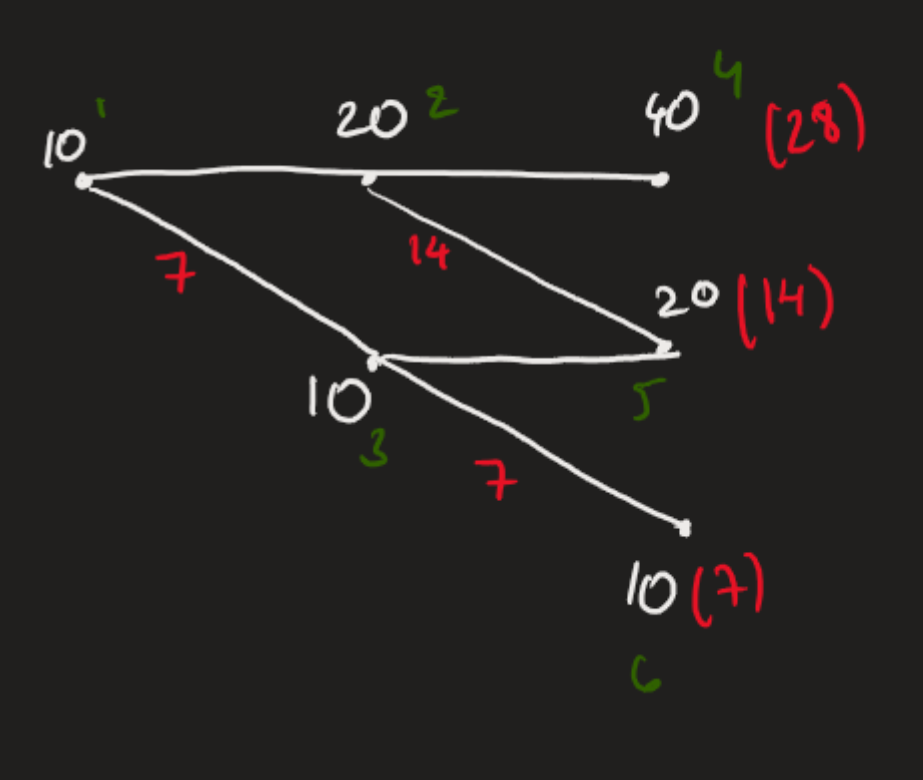 10 1
20 2
40 4 (28)
7
14
20 (14)
10
3
5
7
10 (7)
6